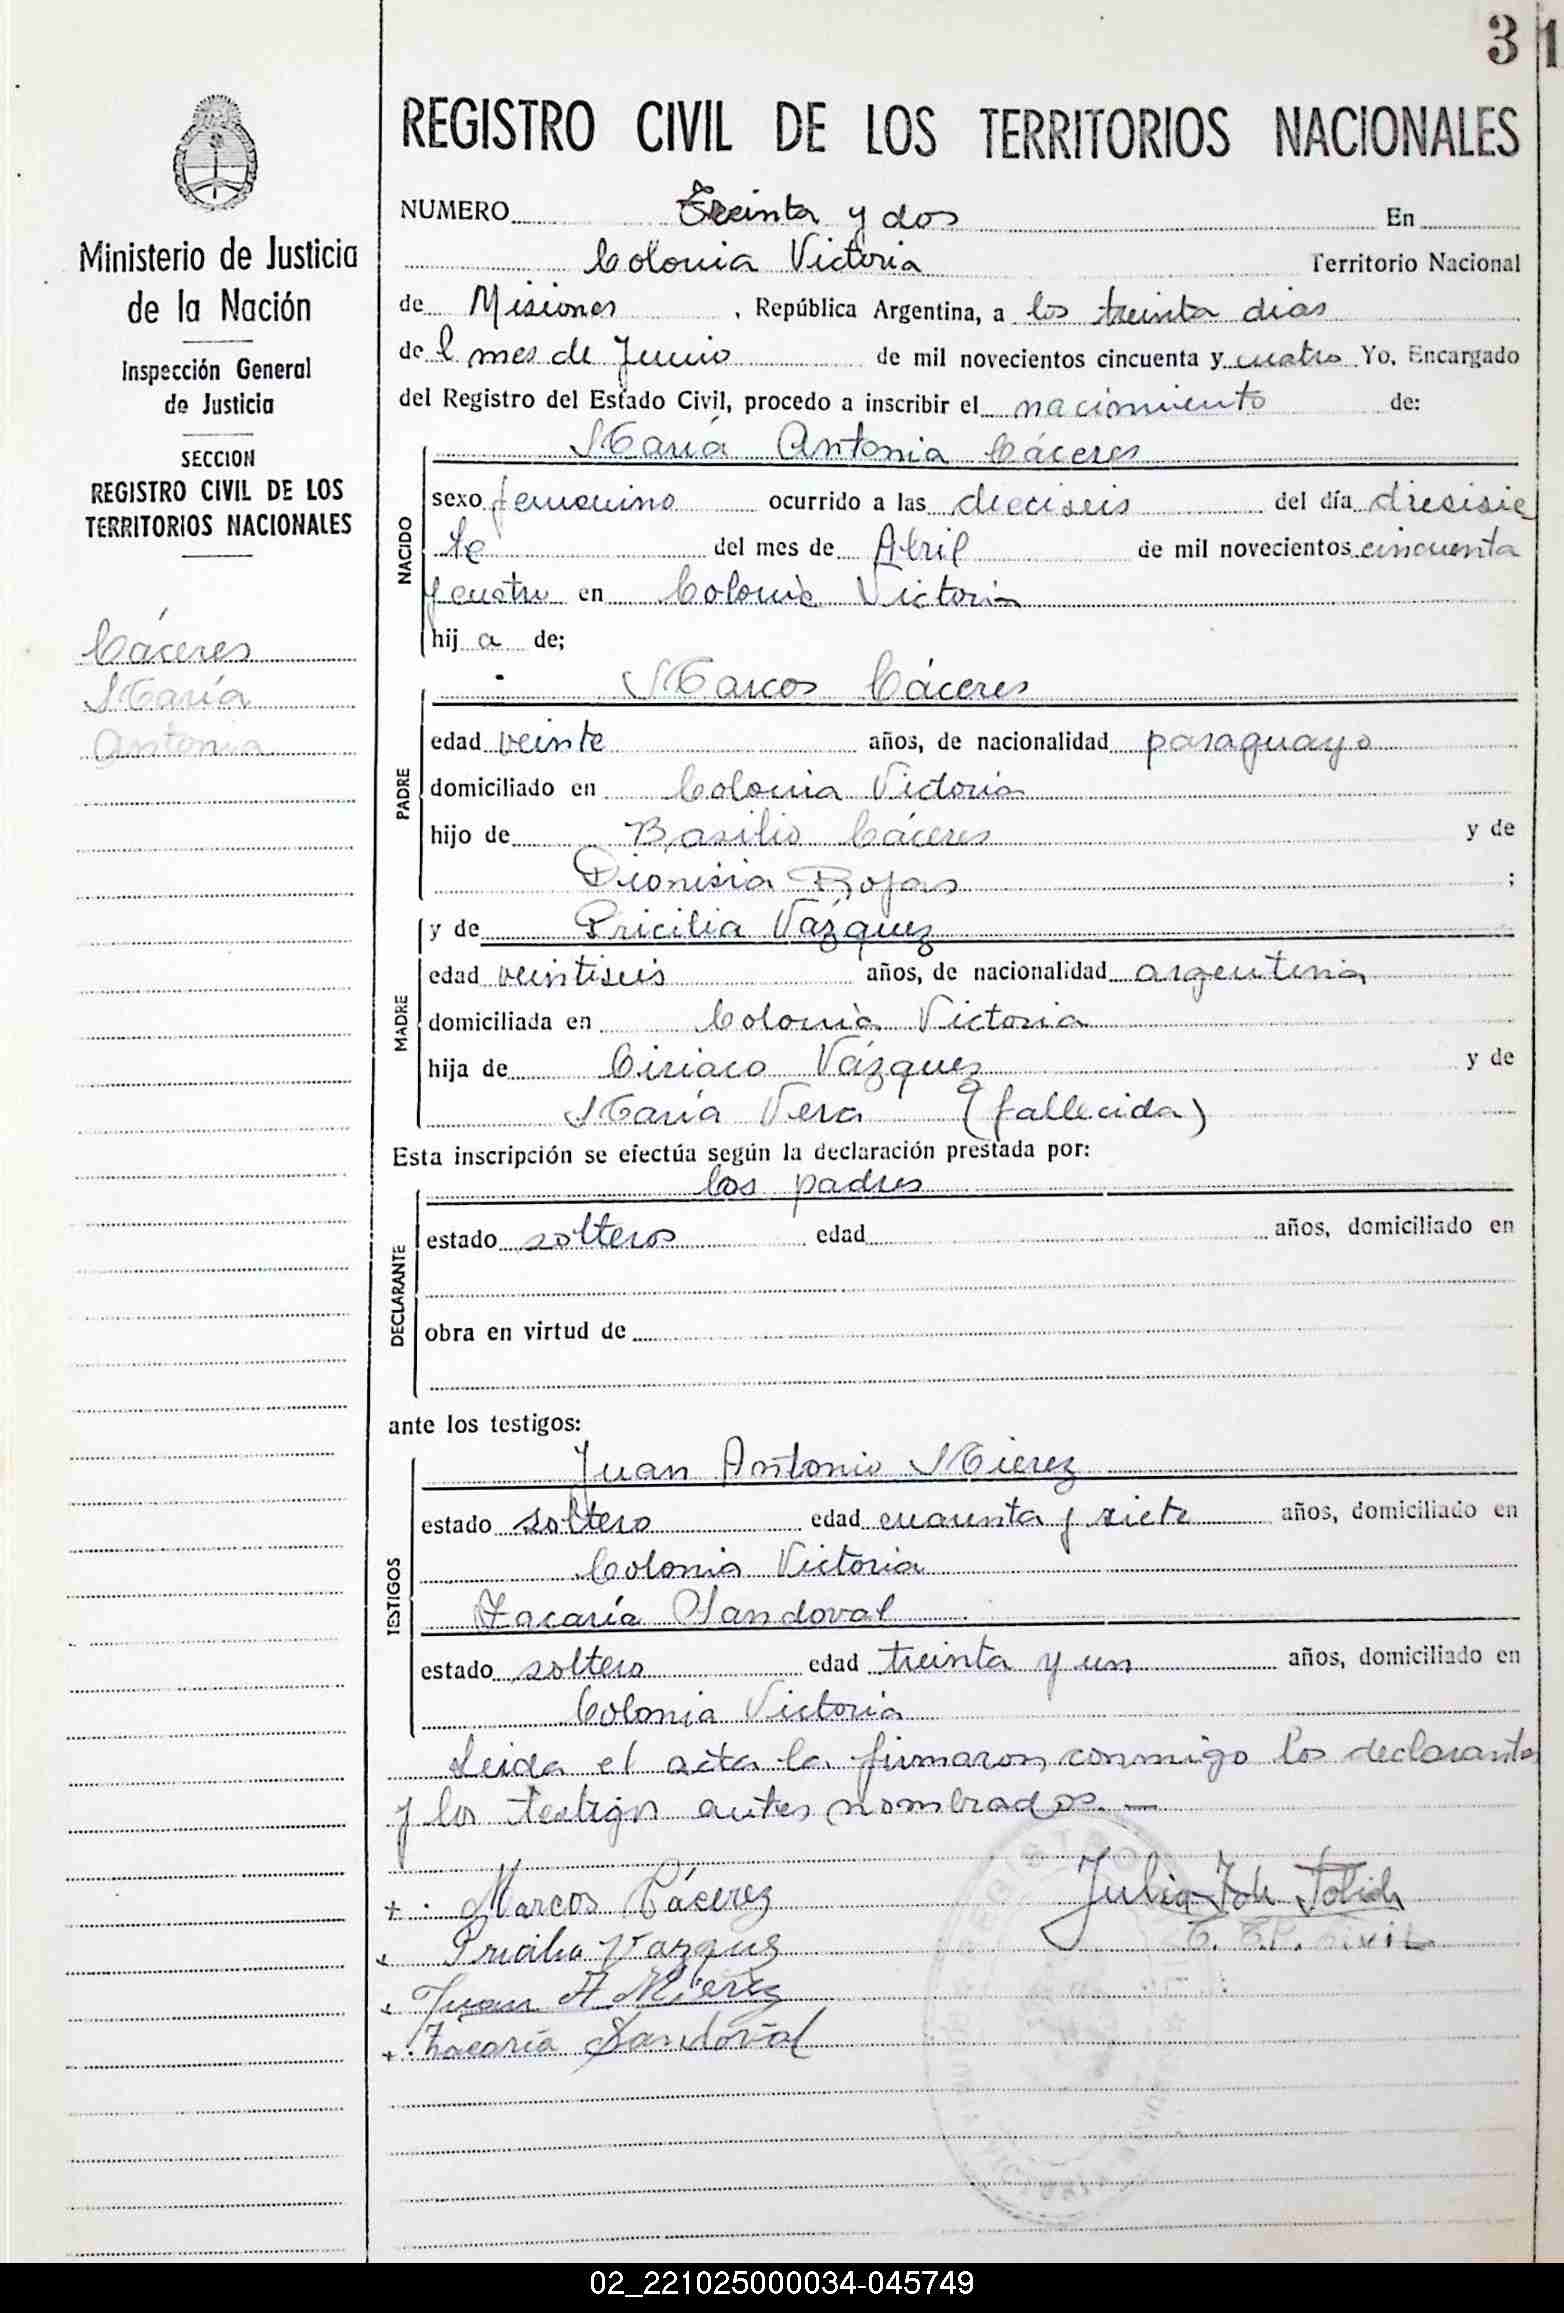 3 1
REGISTRO CIVIL DE LOS TERRITORIOS NACIONALES
Ministerio de Justicia
de la Nación
Inspección General
de Justicia
SECCION
REGISTRO CIVIL DE LOS
TERRITORIOS NACIONALES
Cáceres
María
Antonia
NUMERO Treinta y dos En
Colonia Victoria Territorio Nacional
de Misiones , República Argentina, a los treinta dias
de l mes de Junio de mil novecientos cincuenta y cuatro Yo, Encargado
del Registro del Estado Civil, procedo a inscribir el nacimiento de:
NACIDO
María Antonia Cáceres
sexo femenino ocurrido a las dieciseis del día diesisie
te del mes de Abril de mil novecientos cincuenta
y cuatro en Colonia Victoria
hij a de;
PADRE
Marcos Cáceres
edad veinte años, de nacionalidad paraguayo
domiciliado en Colonia Victoria
hijo de Basilio Cáceres y de
Dionisia Rojas ;
MADRE
y de Pricilia Vázquez
edad veintiseis años, de nacionalidad argentina
domiciliada en Colonia Victoria
hija de Ciriaco Vázquez y de
María Vera (fallecida)
Esta inscripción se efectúa según la declaración prestada por:
DECLARANTE
los padres
estado solteros edad años, domiciliado en
obra en virtud de
ante los testigos:
TESTIGOS
Juan Antonio Mierez
estado soltero edad cuarenta y siete años, domiciliado en
Colonia Victoria
Zacaría Sandoval
estado soltero edad treinta y un años, domiciliado en
Colonia Victoria
Leida el acta la firmaron conmigo los declarantes
y los testigos antes nombrados. —
+ . Marcos Cácerez
Pricilia Vazquez
Juan A Mierez
+ . Zacaría Sandoval
Civil
02_221025000034-045749